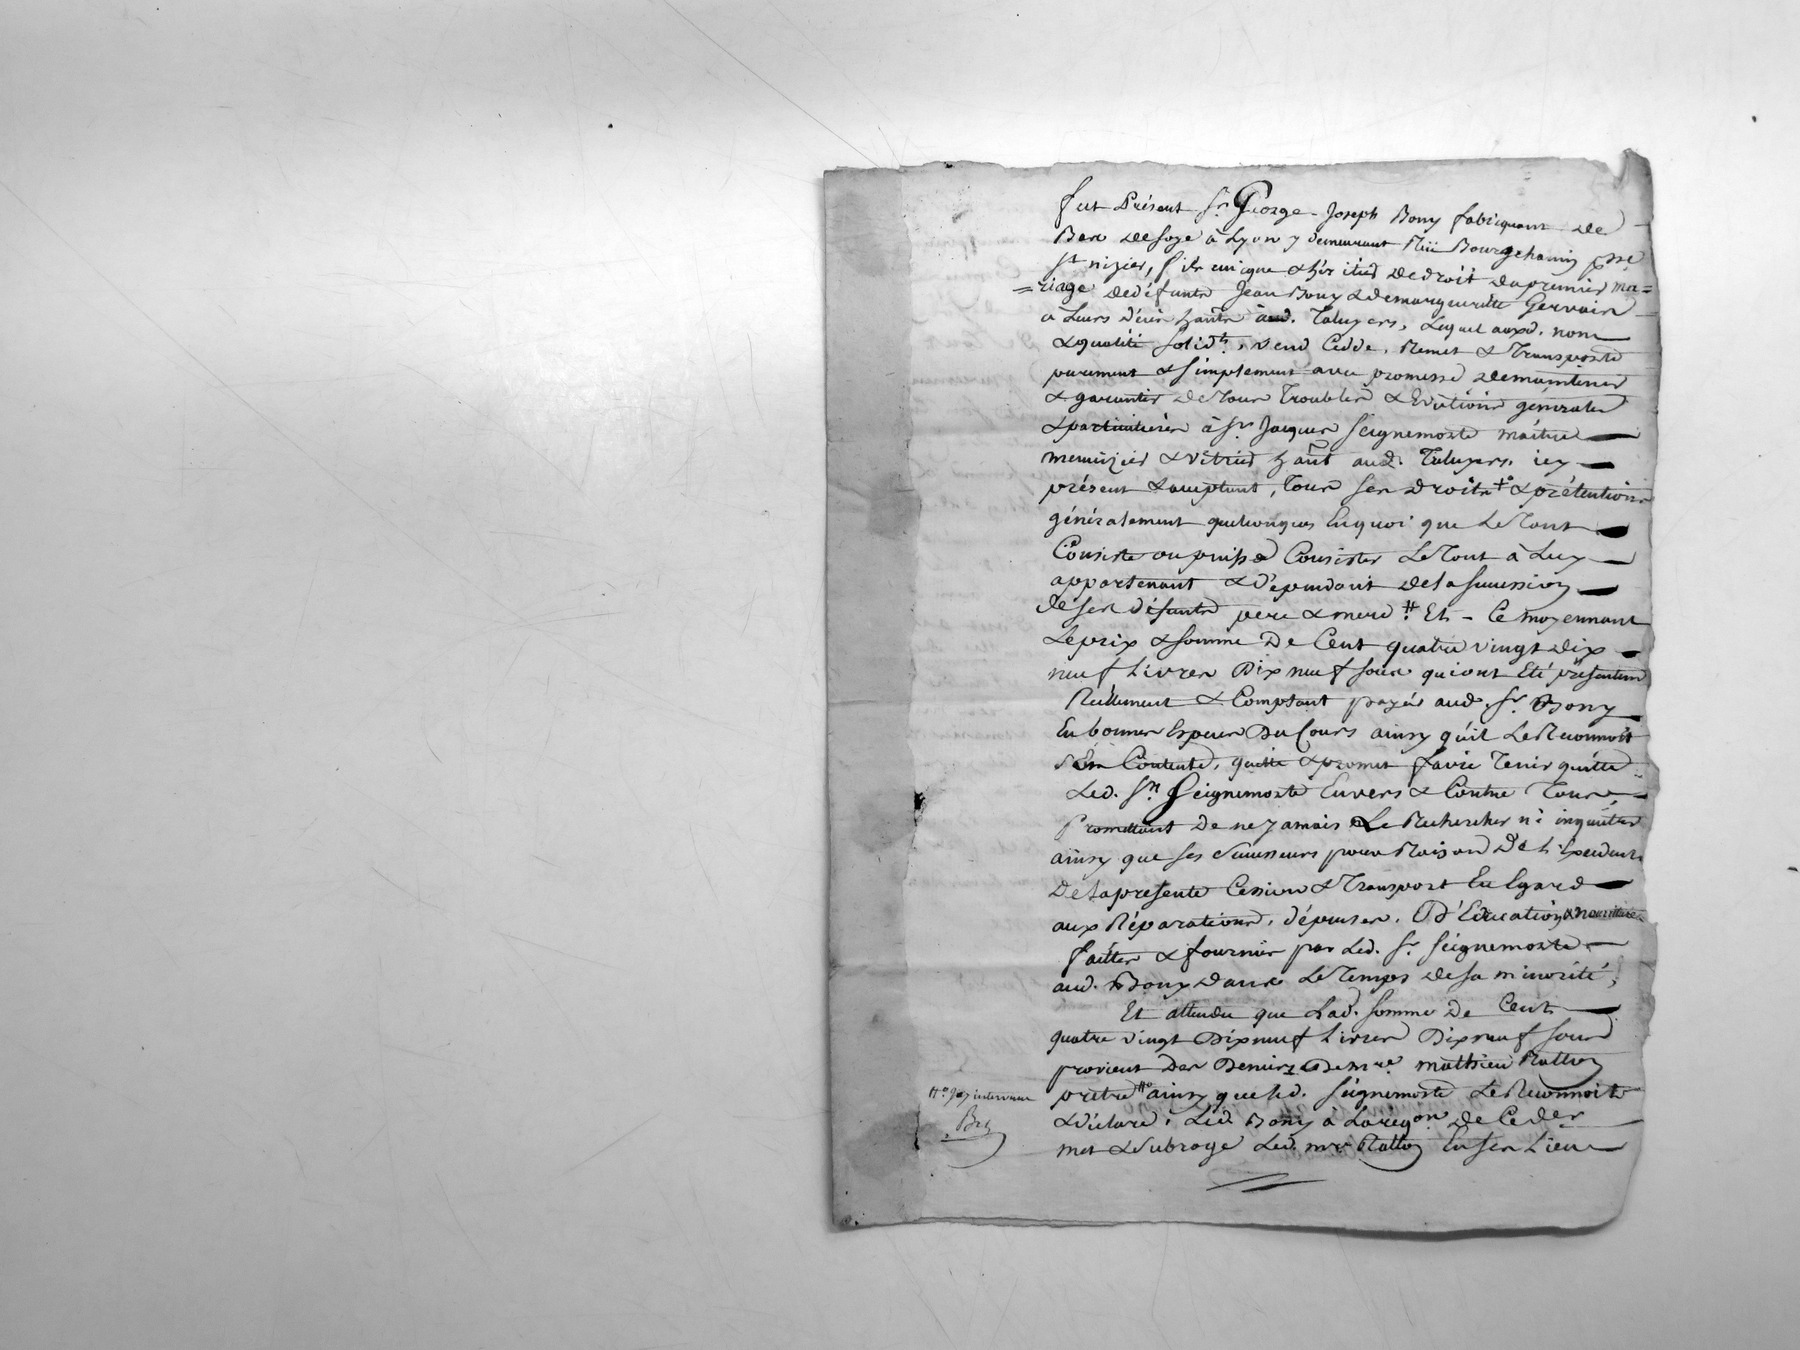 fut Présent Sr. George-Joseph Bony fabriquant de
Bas de soye à Lyon y demeurant Rüe Bourgchanin psse
St nizier, fils unique & héritier de droit du premier ma=
=riage de défunts Jean Bony & de margueritte Gervais
à Leurs décès hants aud. Taluyers, Lequel auxd. nom
& qualité solidt., vend Cedde, Remet & Transporte
purement & simplement avec promesse de maintenir
& garantir de Tous Troubles & Evictions générales
& particulières à Sr. Jacques Seignemorte maître
menuizier & vitrier hant aud. Taluyers. icy
présent & acceptant, Tous ses droits # & prétentions
généralement quelconques En quoi que Le Tout
Consiste ou puisse Consister Le Tout à Luy
appartenant & dépendant de la succession
de ses défunts pere & mere #. Et - Ce moyennant
Le prix & somme De Cent quatre vingt dix
neuf Livres Dix neuf sous qui ont Eté présentem
Réellement & Comptant payés aud. Sr. Bony
En bonnes Espèces Du Cours ainsy qu'il Le Reconnoit
s'En Contente, quitte & promet faire Tenir quitte
Led. Sr. Seignemorte Envers & Contre Tous,
Promettant De ne jamais Le Rechercher ni inquiéter
ainsy que ses Successeurs pour Raison De L'
De la presente Cession & Transport En Egard
aux Réparations, dépenses, D'Education & nourriture
faittes & fournies par Led. Sr. Seignemorte
aud. Bony dans Le Temps de sa minorité,
Et attendu que Lad. somme De Cent
quatre vingt Dix neuf Livres Dix neuf sous
provient Des Deniers De mre. mathieu Rattoz
#o. Icy intervenu
pretre #o ainsy que led. Seignemorte Le Reconnoit
& déclare, Led Bony à La reqon de Ce der
met & Subroge Led. mre Rattoz En ses Lieu